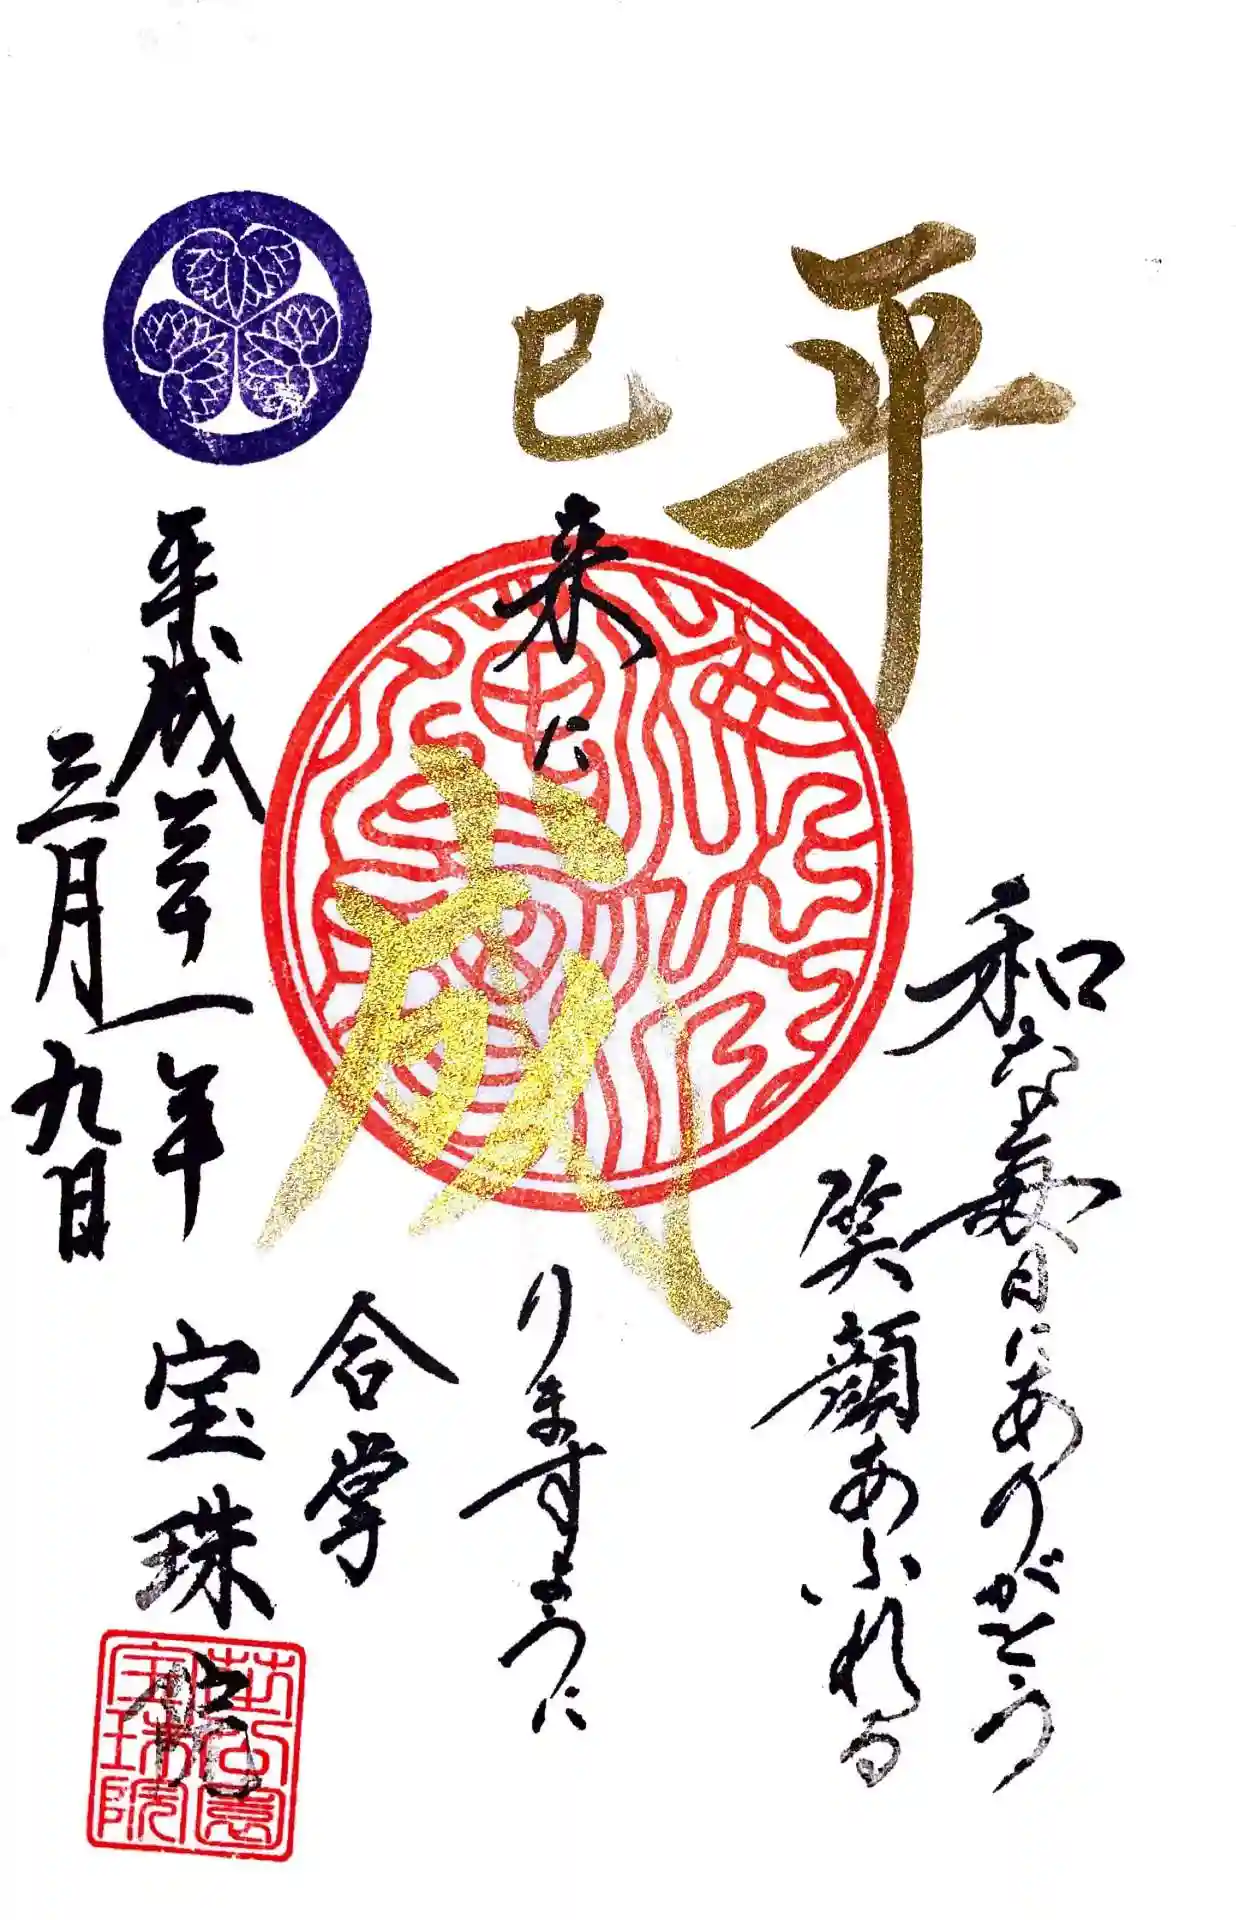 平和な毎日にありがとう
笑顔あふれる
巳来に成りますように
合掌
平成三十一年
三月九日
宝珠院
芝公園
宝珠院